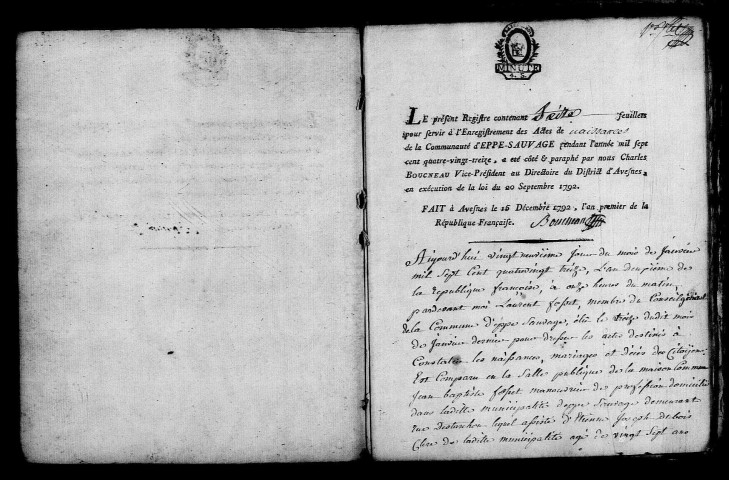 MINUTE
LE présent Registre contenant Seize feuillets
pour servir à l'Enregistrement des Actes de naissances
de la Communauté d'EPPE-SAUVAGE pendant l'année mil sept
cent quatre-vingt-treize, a eté côté & paraphé par nous Charles
BOUCNEAU Vice-Président au Directoire du District d'Avesnes,
en exécution de la loi du 20 Septembre 1792.
FAIT à Avesnes le 16 Décembre 1792, l'an premier de la
République Française. Boucneau
Aujourd'hui vingt neuvième jour du mois de janvier
mil Sept Cent quatrevingt treize, L'an deuxième de
la republique françoise, à onze heures du matin,
pardevant moi Laurent fosset, membre du Conseil général
de la Commune d'eppe Sauvage, élu le treize dudit mois
de janvier dernier pour dresser les actes destinés à
Constater les naissances, mariages et décès des Citoyens
Est Comparu en la Salle publique de la maison Commune
jean baptiste fosset manouvrier de profession domicilié
dans ladite municipalité deppe Sauvage demeurant
rue lequel assisté d'Etienne joseph dubois
Clerc de ladite municipalité agé de vingt Sept ans